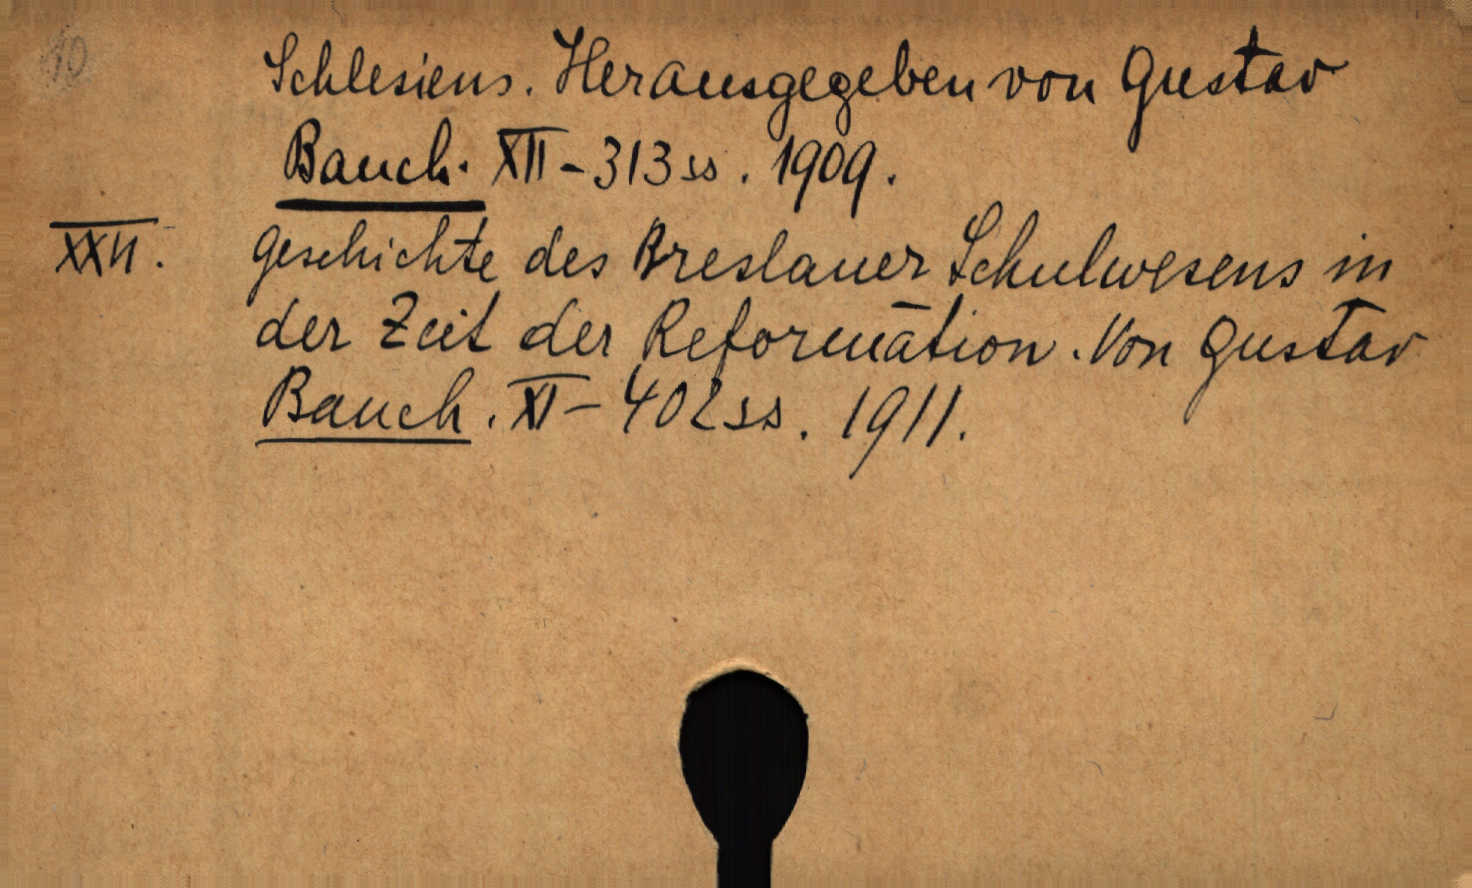 10
Schlesiens. Herausgegeben von Gustav
Bauch. XII - 313 ss. 1909.
XXVI. Geschichte des Breslauer Schulwesens in
der Zeit der Reformation. Von Gustav
Bauch. XI - 402 ss. 1911.